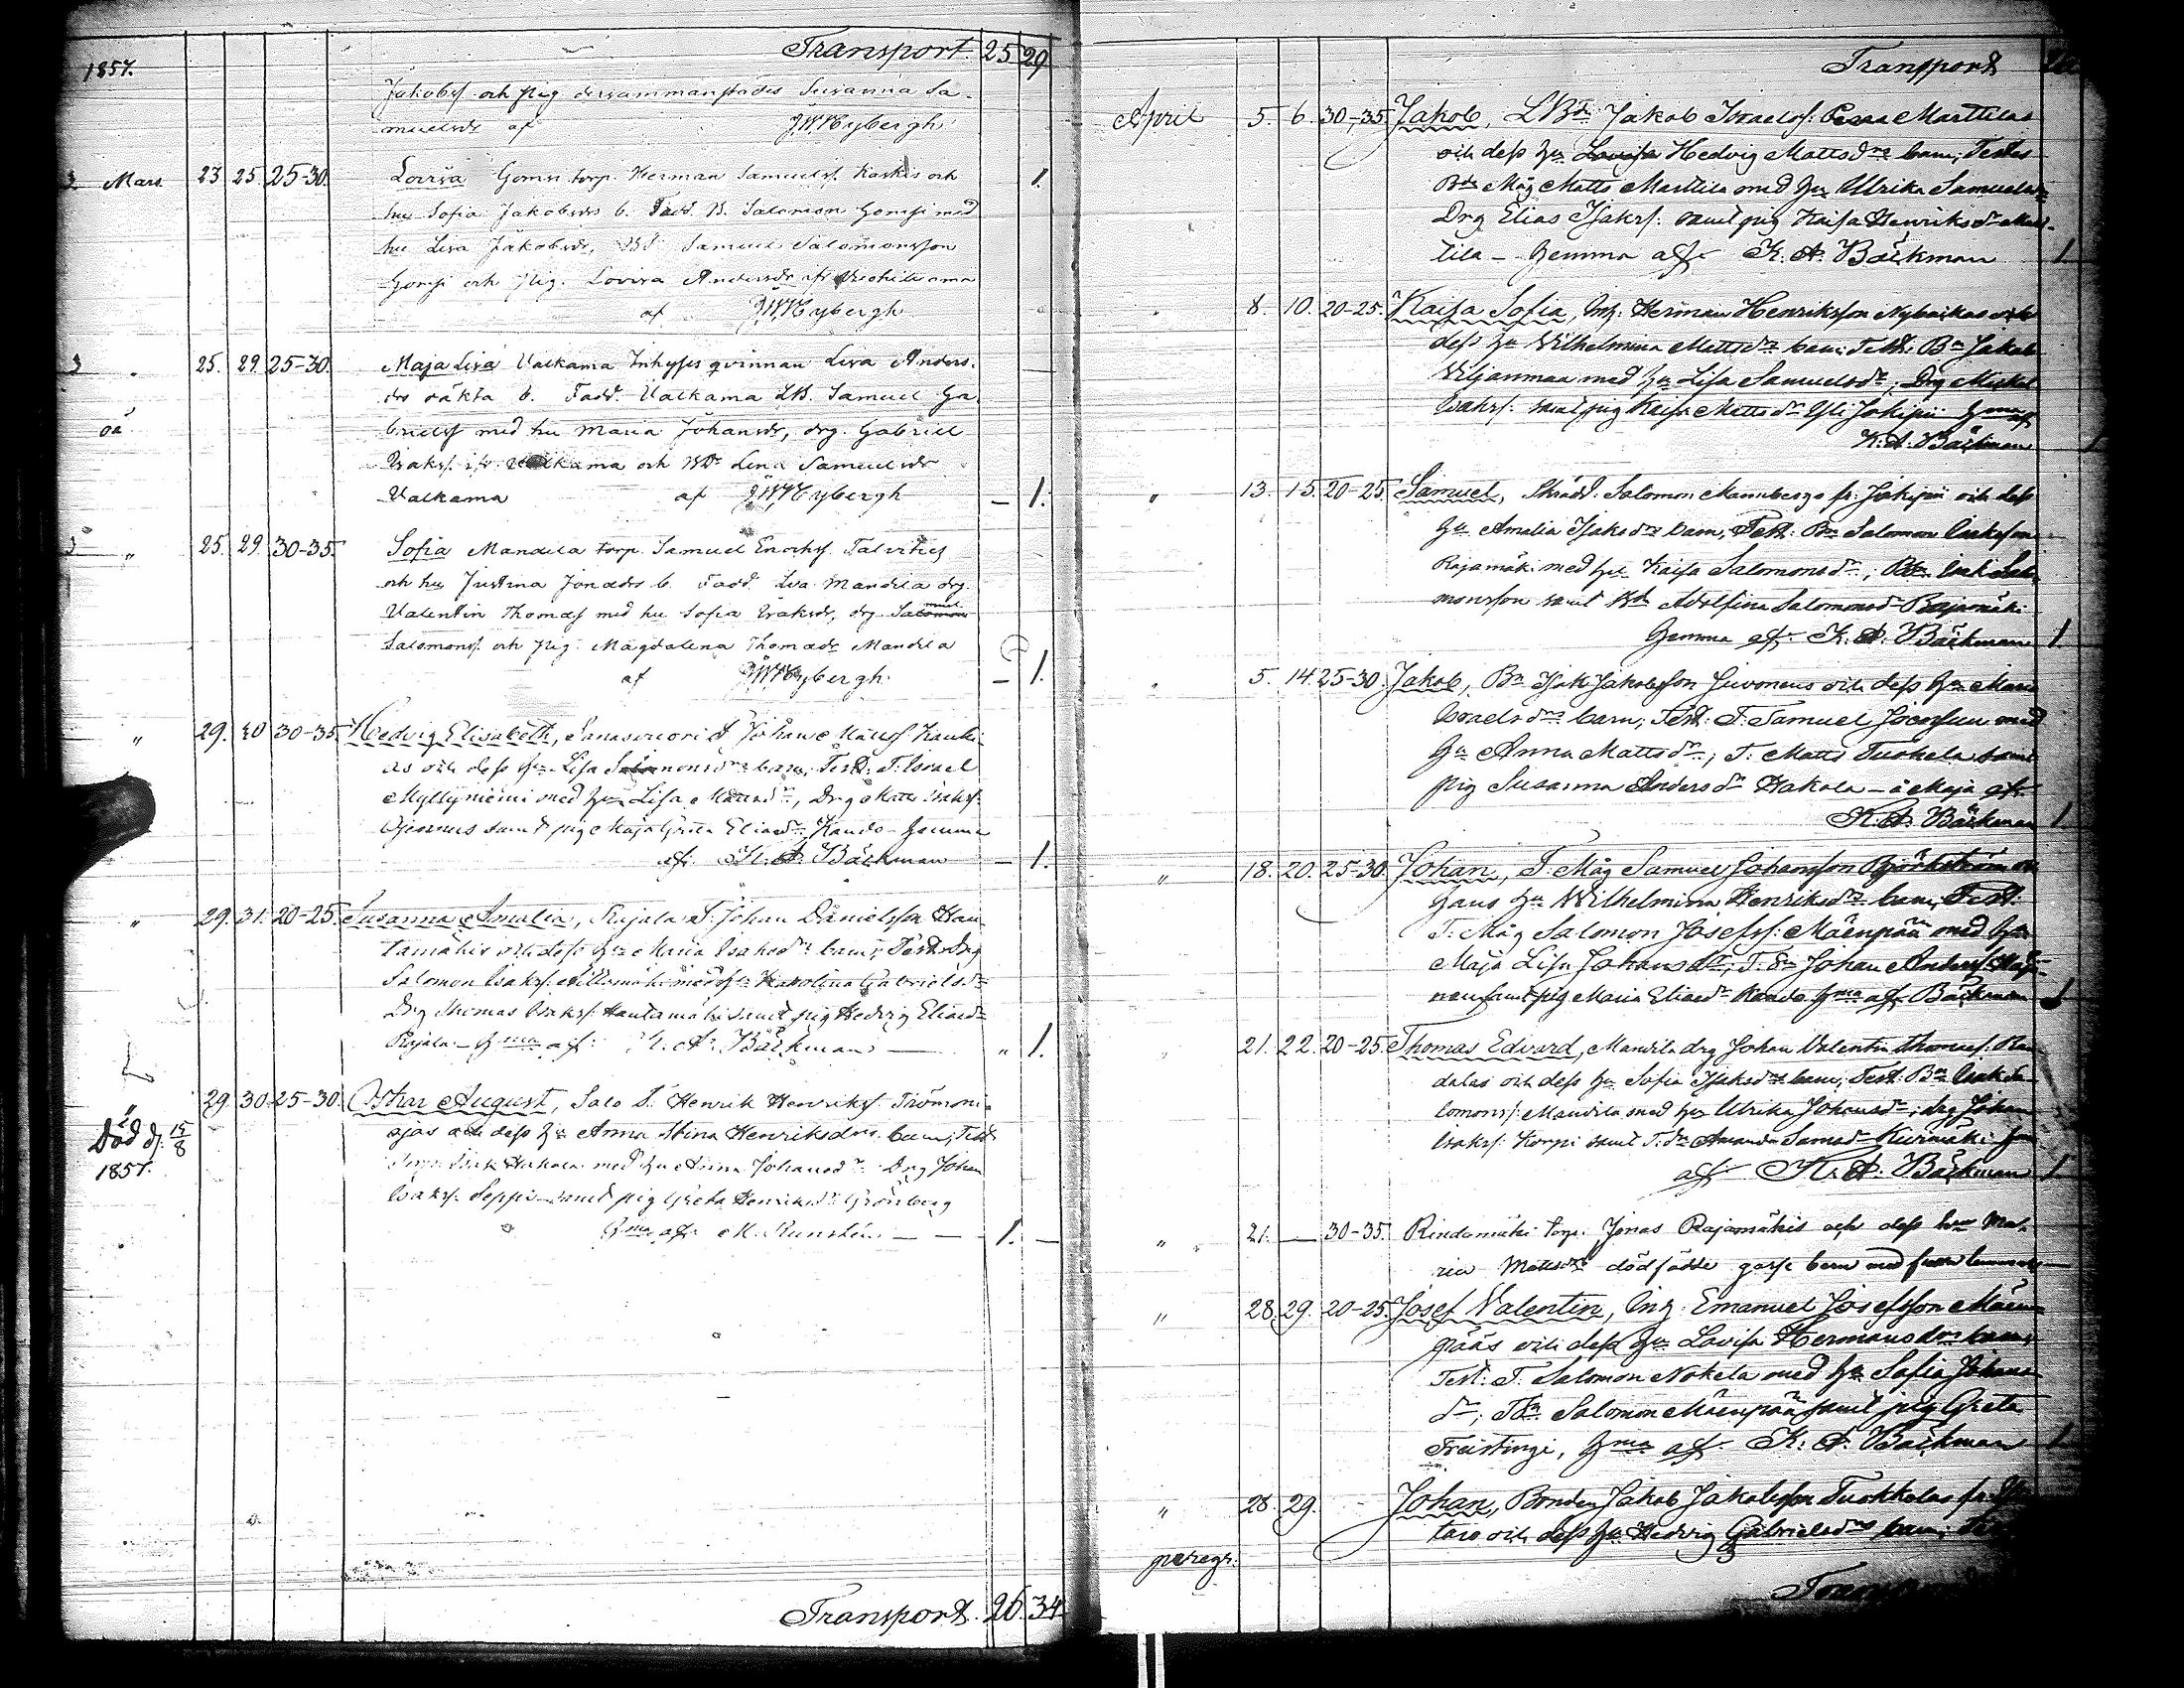 1857.
Transport. 25 29
Jakobsf och pig dersammanstädes Susanna Sa-
muelsdr af J.W. Nybergh
Mars 23. 25 25-30. Lovisa Gomsi torp. Herman Samuelsf. Koskis och 1.
hu Sofia Jakobsdr b. Fadd. B. Salomon Gomsi med
hu Lisa Jakobsdr, Samuel Salomonsson
Gomsi och pig. Lovisa Andersdr
af J.W. Nybergh
" 25. 29. 25-30. Maja Lisa Valkama Inhyses qvinnan Lisa Anders-
drs oäkta b. Fadd. Valkama LB. Samuel Ga-
oä brielsf med hu Maria Johansdr, drg. Gabriel
Isaksf. Valkama och Lena Samuelsdr
Valkama af J.W. Nybergh - 1.
" 25. 29. 30-35. Sofia Mandila torp. Samuel Enochsf. Talvities
och hu Justina Jonasdrs b. Fadd. Mandila drg.
Valentin Thomasf med hu Sofia Isaksdr, drg. Salomon muel
Salomonsf. och pig. Magdalena Thomasdr Mandila
af J.W. Nybergh - 1.
" 29. 30 30-35 Hedvig Elisabeth, T. Johan Mattsf
as och dess hu Lisa Salomonsdrs barn; Test: T: Israel
Myllyniemi med hu Lisa Mattsdr, Drg Matts Isaksf.
samt pig Maja Greta Eliaedr Kando - Hemma
af K. A. Bäckman - 1.
" 29. 31. 20-25. Susanna Amalia, Rajala T. Johan Danielsson Hau-
tamäkis och dess hu Maria Isaksdrs barn; Test: Drg
Salomon Isaksf. med hu Karolina Gabrielsdr
Drg Thomas Isaksf. Hautamäki samt pig Hedvig Eliaedr
Rajala - Hma af K. A. Bäckman - " 1.
" 29. 30. 25-30. Oskar August, Salo T. Henrik Henriksf.
Död d. 15/8 ojas och dess hu Anna Stina Henriksdrs barn; Test
1857. Isak Hakola med hu Anna Johansdr Drg Johan
Isaksf. Seppi samt pig Greta Henriksdr Grönberg
Hma af M. Runsten - - 1. -
Transport. 26. 34.
Transport
April 5. 6. 30-35. Jakob, LBdn Jakob Israelsf. Marttilas
och dess hu Lovisa Hedvig Mattsdrs barn; Testes
Bds Måg Matts Marttila med hu Ulrika Samuelsdr
Drg Elias Isaksf. samt pig Kaisa Henriksdr Mart-
tila - Hemma af K. A. Bäckman 1
" 8. 10. 20-25. Kaisa Sofia, Inh. Herman Henriksson och
dess hu Wilhelmina Mattsdrs barn; Test: Bn Jakob
Viljanmaa med hu Lisa Samuelsdr; Drg Mickel
Isaksf. samt pig Kaisa Mattsdr Yli Jokipii Hma af
K. A. Bäckman 1
" 13. 15. 20-25. Samuel, Skrädd. Salomon Mannbergs fr. Jokipii och dess
hu Amalia Isaksdrs barn, Test: Bn Salomon Isaksson
Rajamäki med hu Kaisa Salomonsdr; Bsn Isak Salo-
monsson samt Bd Adolfina Salomonsdr Rajamäki
Hemma af K. A. Bäckman 1.
" 5. 14. 25-30. Jakob, Bn Isak Jakobsson Juvonens och dess hu Maria
Israelsdrs barn; Test: T: Samuel med
hu Anna Mattsdr; T: Matts Tuokola samt
pig Susanna Andersdr Hakola - af
K. A. Bäckman 1
" 18. 20. 25-30. Johan, T. Måg Samuel Johansson Björkström och
hans hu Wilhelmina Henriksdrs barn, Test.
T: Måg Salomon Josefsf. Mäenpää med hu
Maja Lisa Johansdr; T. Sn Johan Andersf
samt pig Maria Eliaedr Kando Hma af Bäckman 1
" 21. 22. 20-25. Thomas Edvard, Mandila drg Johan Valentin Thomasf.
och dess hu Sofia Isaksdrs barn; Test: Bn Isak Sa-
lomonsf. Mandila med hu Ulrika Johansdr; drg Johan
Isaksf. Korpi samt T. dr Amanda Samsdr
af K. A. Bäckman 1
" 21. - 30-35. Rindamäki torp. Jonas Rajamäkis och dess hu Ma-
ria Mattsdrs dödfödde gosse barn
" 28. 29. 20-25. Josef Valentin, Inh. Emanuel Josefsson Mäen-
pääs och dess hu Lovisa Hermansdrs barn;
Test. T. Salomon Nokela med hu Sofia Johans-
dr; TSn Salomon Mäenpää samt pig Greta
Treistingi, Hma af K. A. Bäckman 1
" 28. 29. Johan, Bonden Jakob Jakobsson Tuokkolas fr.
peregr. och dess hu Hedvig Gabrielsdrs barn;